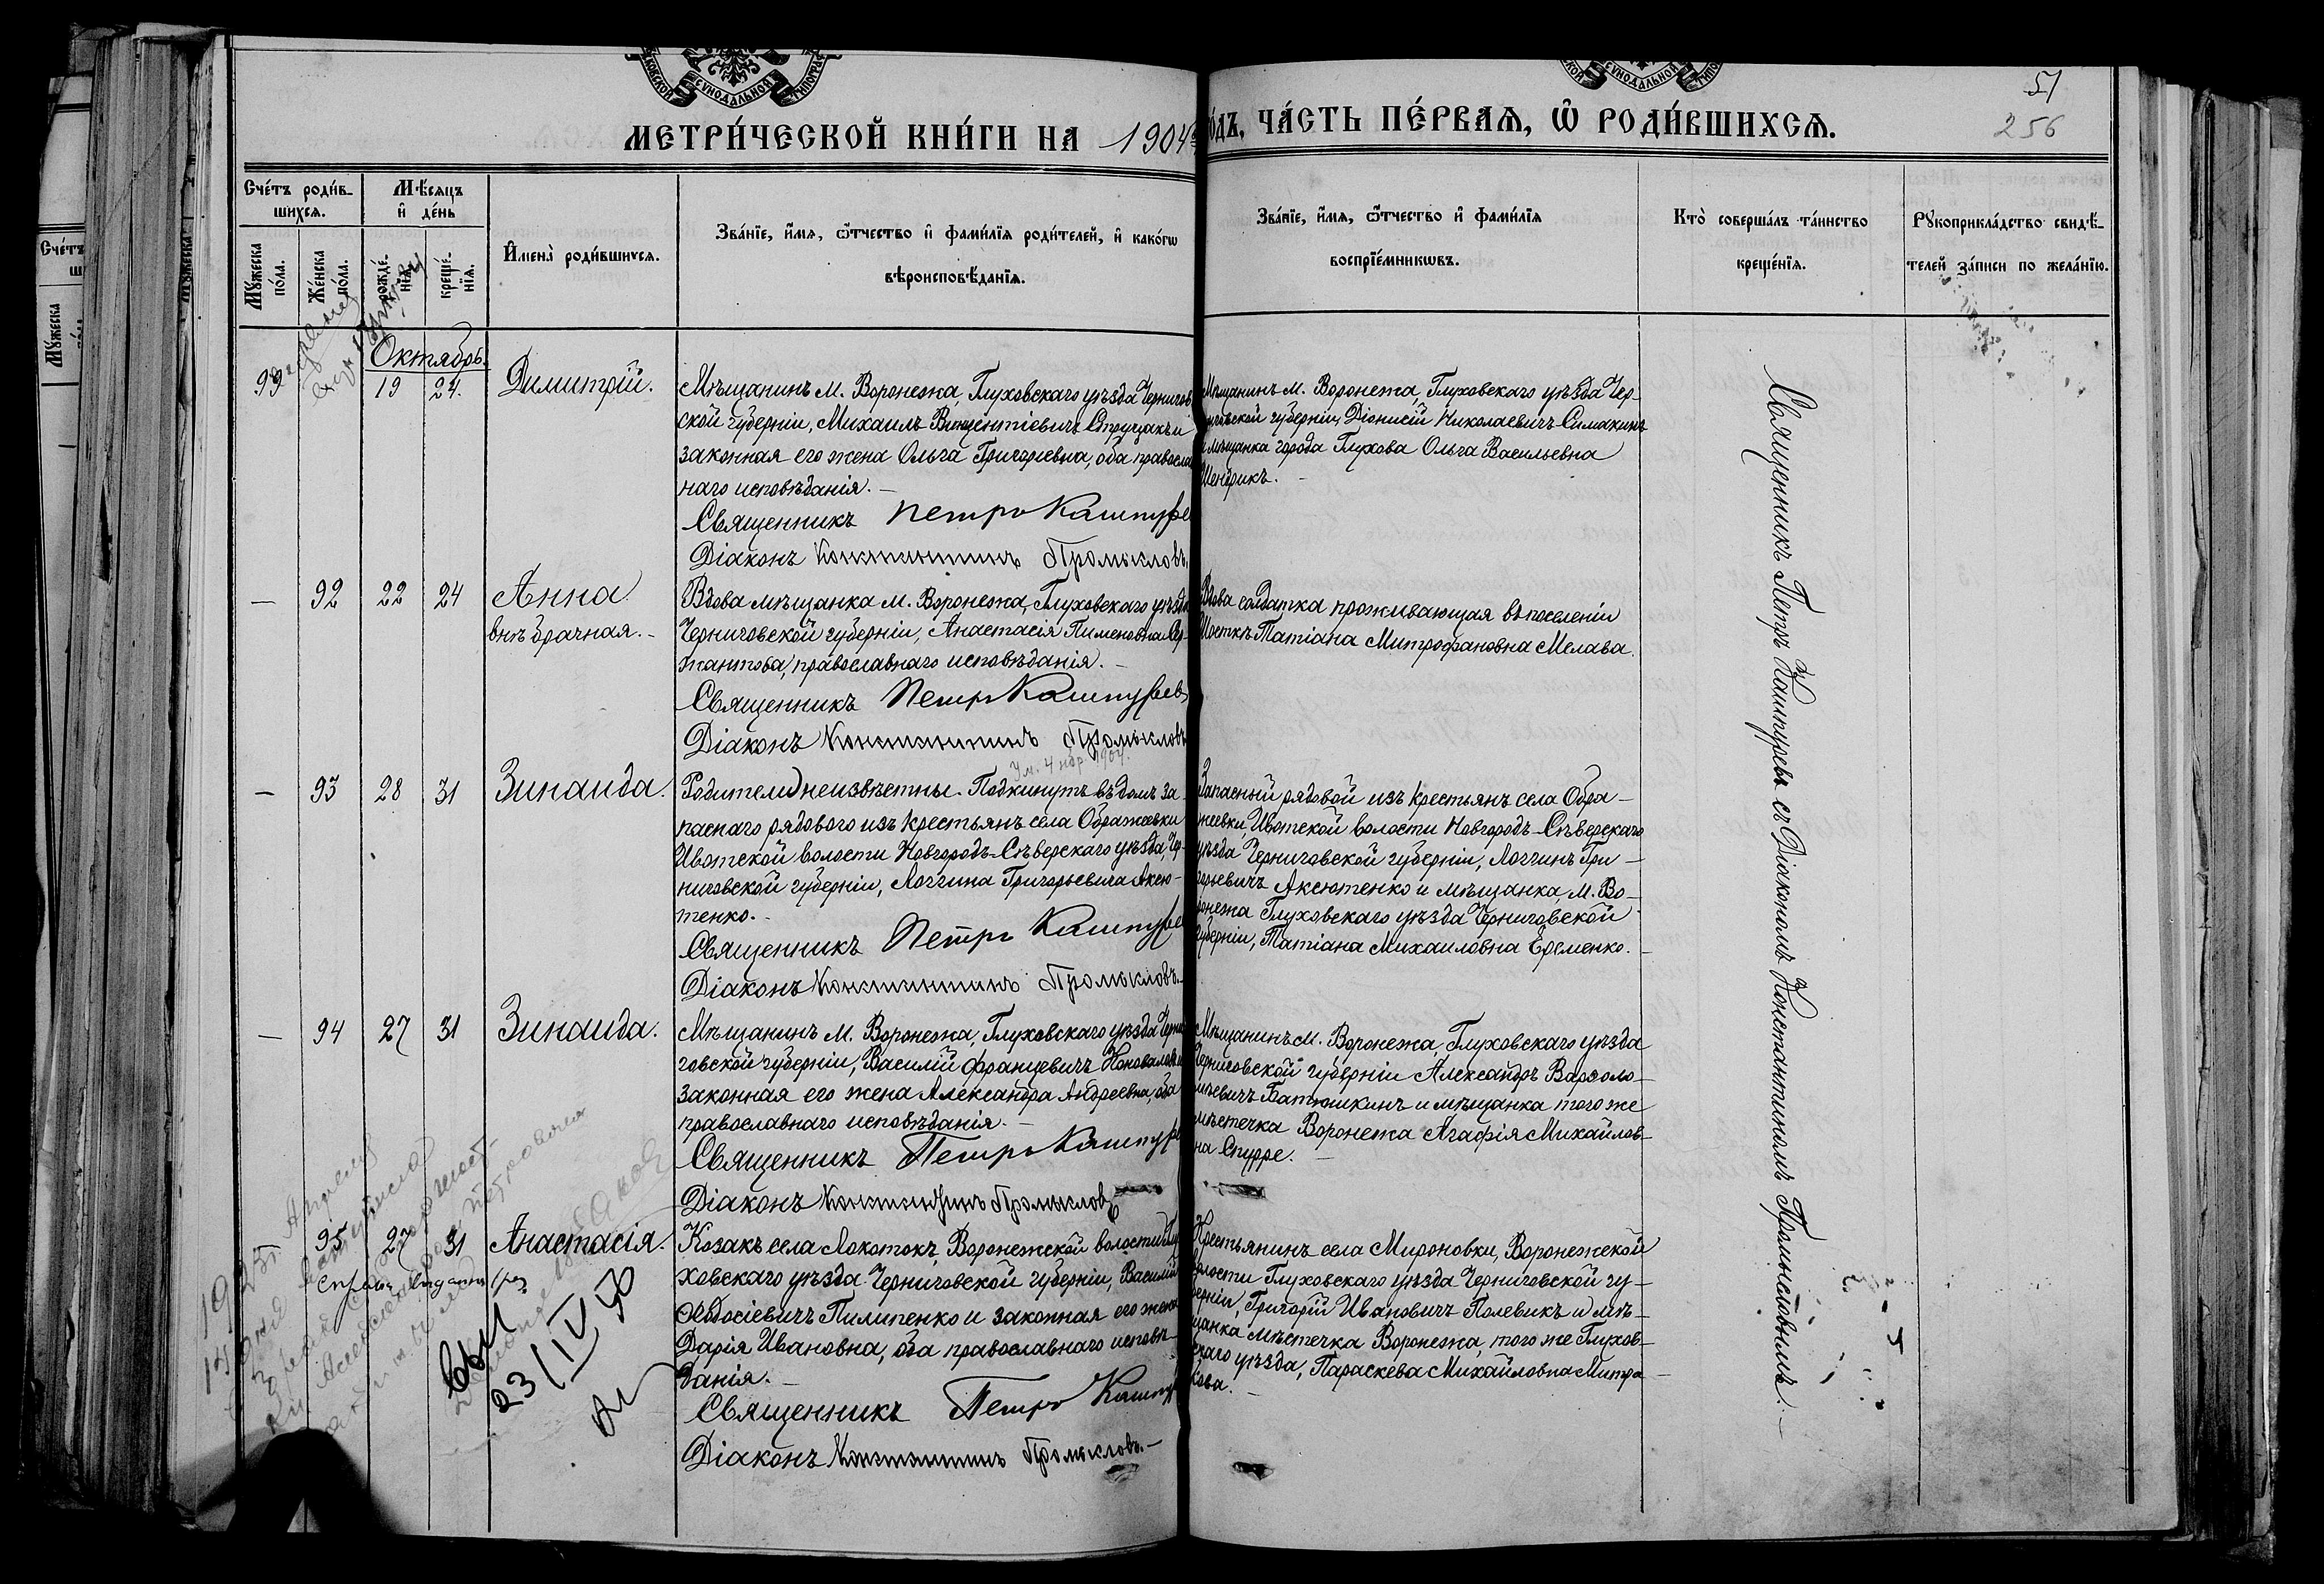 МЕТРИ́ЧЕСКОЙ КНИ́ГИ НА 1904
ГО́ДЪ, ЧА́СТЬ ПЕ́РВАѦ, Ѽ РОДИ́ВШИХСѦ.
51
256
Сче́тъ роди́в-
шихсѧ.
Мѣ́сѧцъ
и҆ де́нь
Мꙋ́жеска
по́ла.
Же́нска
по́ла.
рожде́-
нїѧ.
креще́-
нїѧ.
И҆мена̀ роди́вшихсѧ.
Зва́нїе, и҆́мѧ, ѻ҆́тчество и҆ фами́лїѧ роди́телей, и҆ како́гѡ
вѣроисповѣ́данїѧ.
Зва́нїе, и҆́мѧ, ѻ҆́тчество и҆ фами́лїѧ
воспрїе́мникѡвъ.
Кто̀ соверша́лъ та́инство
креще́нїѧ.
Рꙋкоприкла́дство свидѣ́-
телей за́писи по жела́нїю.
Октябрь.
99 19 24. Димитрій.
Мѣщанинъ м. Воронежа, Глуховскаго уѣзда Чернигов
ской губерніи, Михаилъ Викентіевичъ и
законная его жена Ольга Григорьевна, оба православ
наго исповѣданія. —
Священникъ Петръ Каштуре
Діаконъ Константинъ Промысловъ
Мѣщанинъ м. Воронежа, Глуховскаго уѣзда Чер-
ниговской губерніи, Діонисій Николаевичъ Симакинъ
и мѣщанка города Глухова Ольга Васильевна
Шендрикъ. —
— 92 22 24 Анна
внѣбрачная. —
Вдова мѣщанка м. Воронежа, Глуховскаго уѣзда
Черниговской губерніи, Анастасія Пименовна
православнаго исповѣданія. —
Священникъ Петръ Каштуревъ
Діаконъ Константинъ Промысловъ
Вдова солдатка проживающая въ поселеніи
Шосткѣ Татіана Митрофановна Мелава.
— 93 28 31 Зинаида.
Ум. 4 нбр 1904.
Родители неизвѣстны. Подкинутъ въ домъ за-
паснаго рядового изъ крестьянъ села Ображеевки
Ивотской волости Новгородъ-Сѣверскаго уѣзда, Чер-
ниговской губерніи, Логгина Григорьевича Аксю-
тенко. —
Священникъ Петръ Каштуре
Діаконъ Константинъ Промысловъ. —
Запасный рядовой изъ крестьянъ села Обра-
жеевки, Ивотской волости Новгородъ-Сѣверскаго
уѣзда Черниговской губерніи, Логгинъ Гри-
горьевичъ Аксютенко и мѣщанка, м. Во-
ронежа Глуховскаго уѣзда Черниговской
губерніи, Татіана Михаиловна Еременко. —
— 94 27 31 Зинаида.
Мѣщанинъ м. Воронежа, Глуховскаго уѣзда Черни
говской губерніи, Василій Францевичъ Коновалов и
законная его жена Александра Андреевна, оба
православнаго исповѣданія. —
Священникъ Петръ Каштуре
Діаконъ Константинъ Промысловъ
Мѣщанинъ м. Воронежа, Глуховскаго уѣзда
Черниговской губерніи Александръ Варѳоло-
меевичъ Батюшкинъ и мѣщанка того же
мѣстечка Воронежа Агафія Михайлов-
на Спурре. —
95 27 31 Анастасія.
23/IV 50
Козакъ села Локотокъ, Воронежской волости Глу
ховскаго уѣзда Черниговской губерніи, Василій
Ѳеодосіевичъ Пилипенко и законная его жена
Дарія Ивановна, оба православнаго исповѣ-
данія. —
Священникъ Петръ Каштур
Діаконъ Константинъ Промысловъ. —
Крестьянинъ села Мироновки, Воронежской
волости Глуховскаго уѣзда Черниговской гу-
берніи, Григорій Ивановичъ Полевикъ и мѣ-
щанка мѣстечка Воронежа, того же Глухов-
скаго уѣзда, Параскева Михайловна Митра-
кова. —
Священникъ Петръ Каштуревъ съ Діакономъ Константиномъ Промысловымъ. —